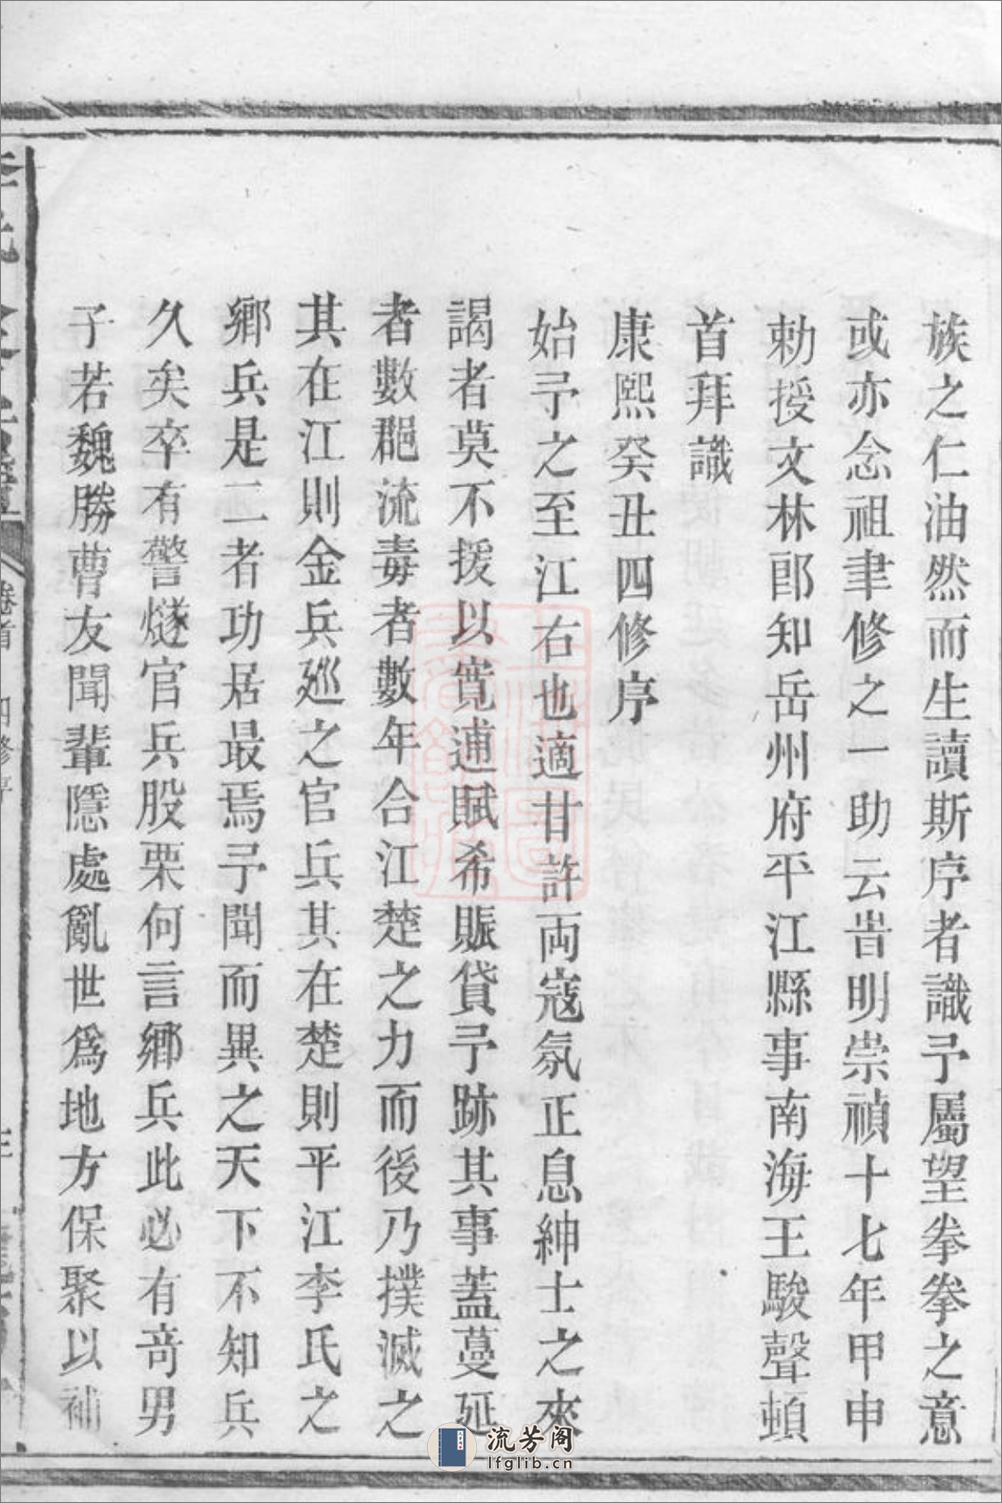 族之仁油然而生讀斯序者識予屬望拳拳之意
或亦念祖聿修之一助云旹明崇禎十七年甲申
勅授文林郎知岳州府平江縣事南海王駿聲頓
首拜識
康熙癸丑四修序
始予之至江右也適甘許両寇氛正息紳士之來
謁者莫不援以寛逋賦希賑貸予跡其事蓋蔓延
者數郡流毒者數年合江楚之力而後乃撲滅之
其在江則金兵廵之官兵其在楚則平江李氏之
鄉兵是二者功居最焉予聞而異之天下不知兵
久矣卒有警燧官兵股栗何言鄉兵此必有竒男
子若魏勝曹友聞輩隱處亂世爲地方保聚以補
卷首 四修序
流芳阁
lfglib.cn